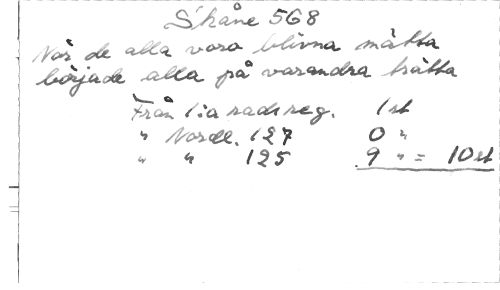 Skåne 568
När de alla voro blivna mätta
började alla på varandra trätta
Från 1:a radsreg. 1 st
" Nordl. 127 0 "
" " 125 9 " = 10 st